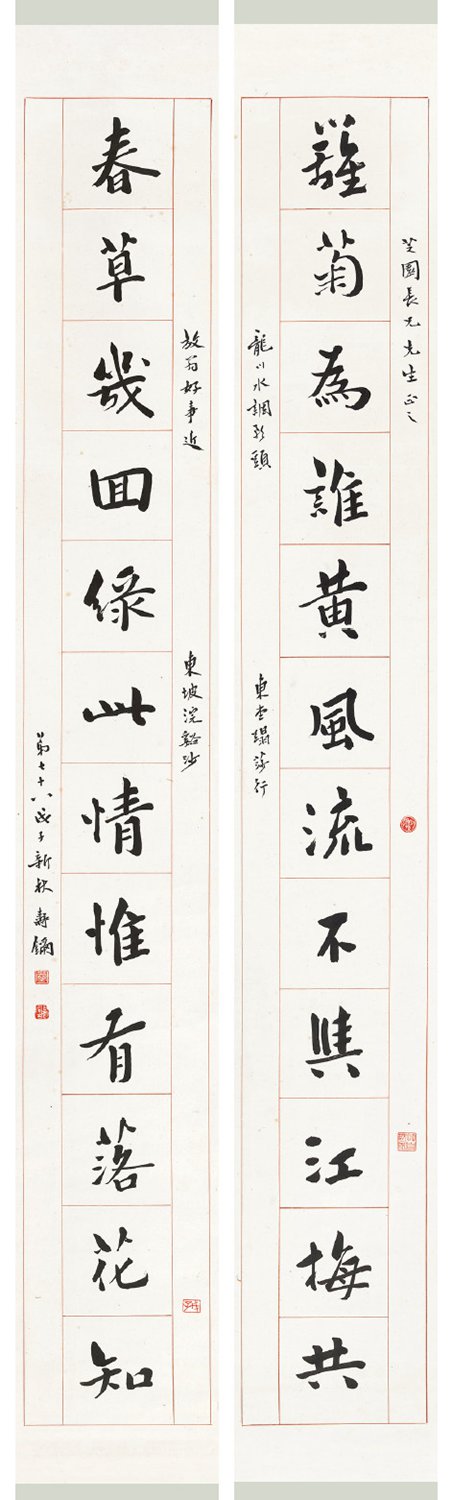 芝園長兄先生正之
籬菊為誰黄風流不與江梅共
龍川水調歌頭
東堂蹋莎行
放翁好事近
東坡浣谿沙
春草幾囬綠此情惟有落花知
第七十八戊子新秋壽鏞